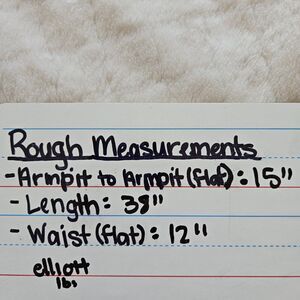 Rough Measurements
- Armpit to Armpit (flat) : 15"
- Length : 38"
- Waist (flat) : 12"
elliott